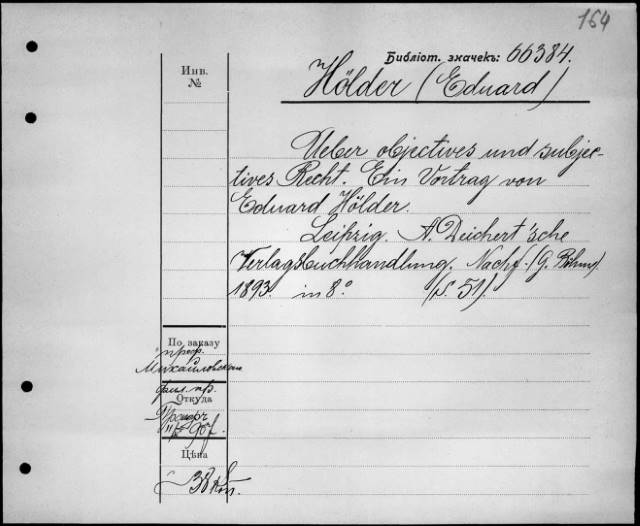 164
Библіот. значекъ: 66384.
Инв.
№
Hölder (Eduard)
Ueber objectives und subjec-
tives Recht. Ein Vortrag von
Eduard Hölder.
Leipzig. A. Deichert'sche
Verlagsbuchhandlung. Nachf. (G. Böhme).
1893. in 8° (S. 51).
По заказу
проф.
Михайловскаго
Откуда
Цѣна
38 коп.